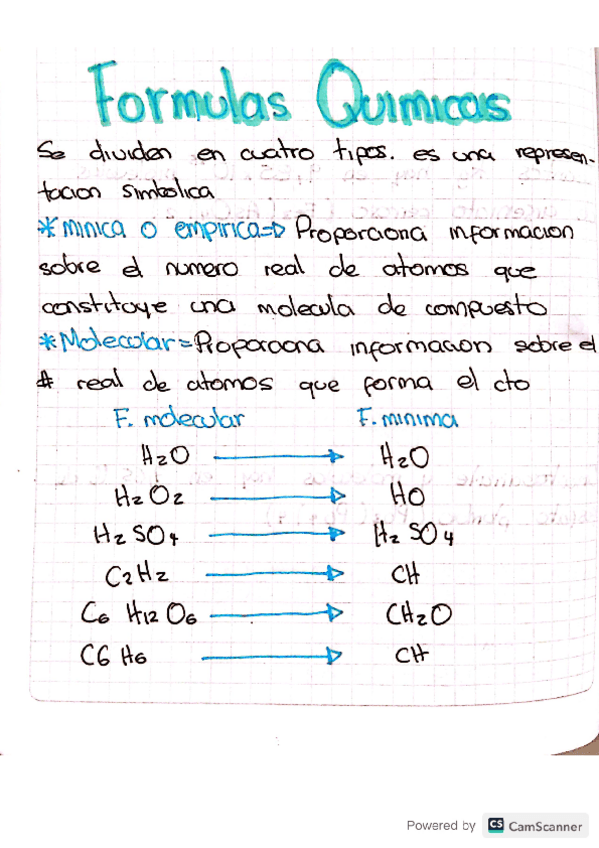 Formulas Quimicas
Se dividen en cuatro tipos. es una represen-
tacion simbolica
*minica o empirica=> Proporciona informacion
sobre el numero real de atomos que
constituye una molecula de compuesto
*Molecular=Proporciona informacion sobre el
# real de atomos que forma el cto
F. molecular F. minima
H2O → H2O
H2O2 → HO
H2SO4 → H2SO4
C2H2 → CH
C6 H12 O6 → CH2O
C6 H6 → CH
Powered by CS CamScanner